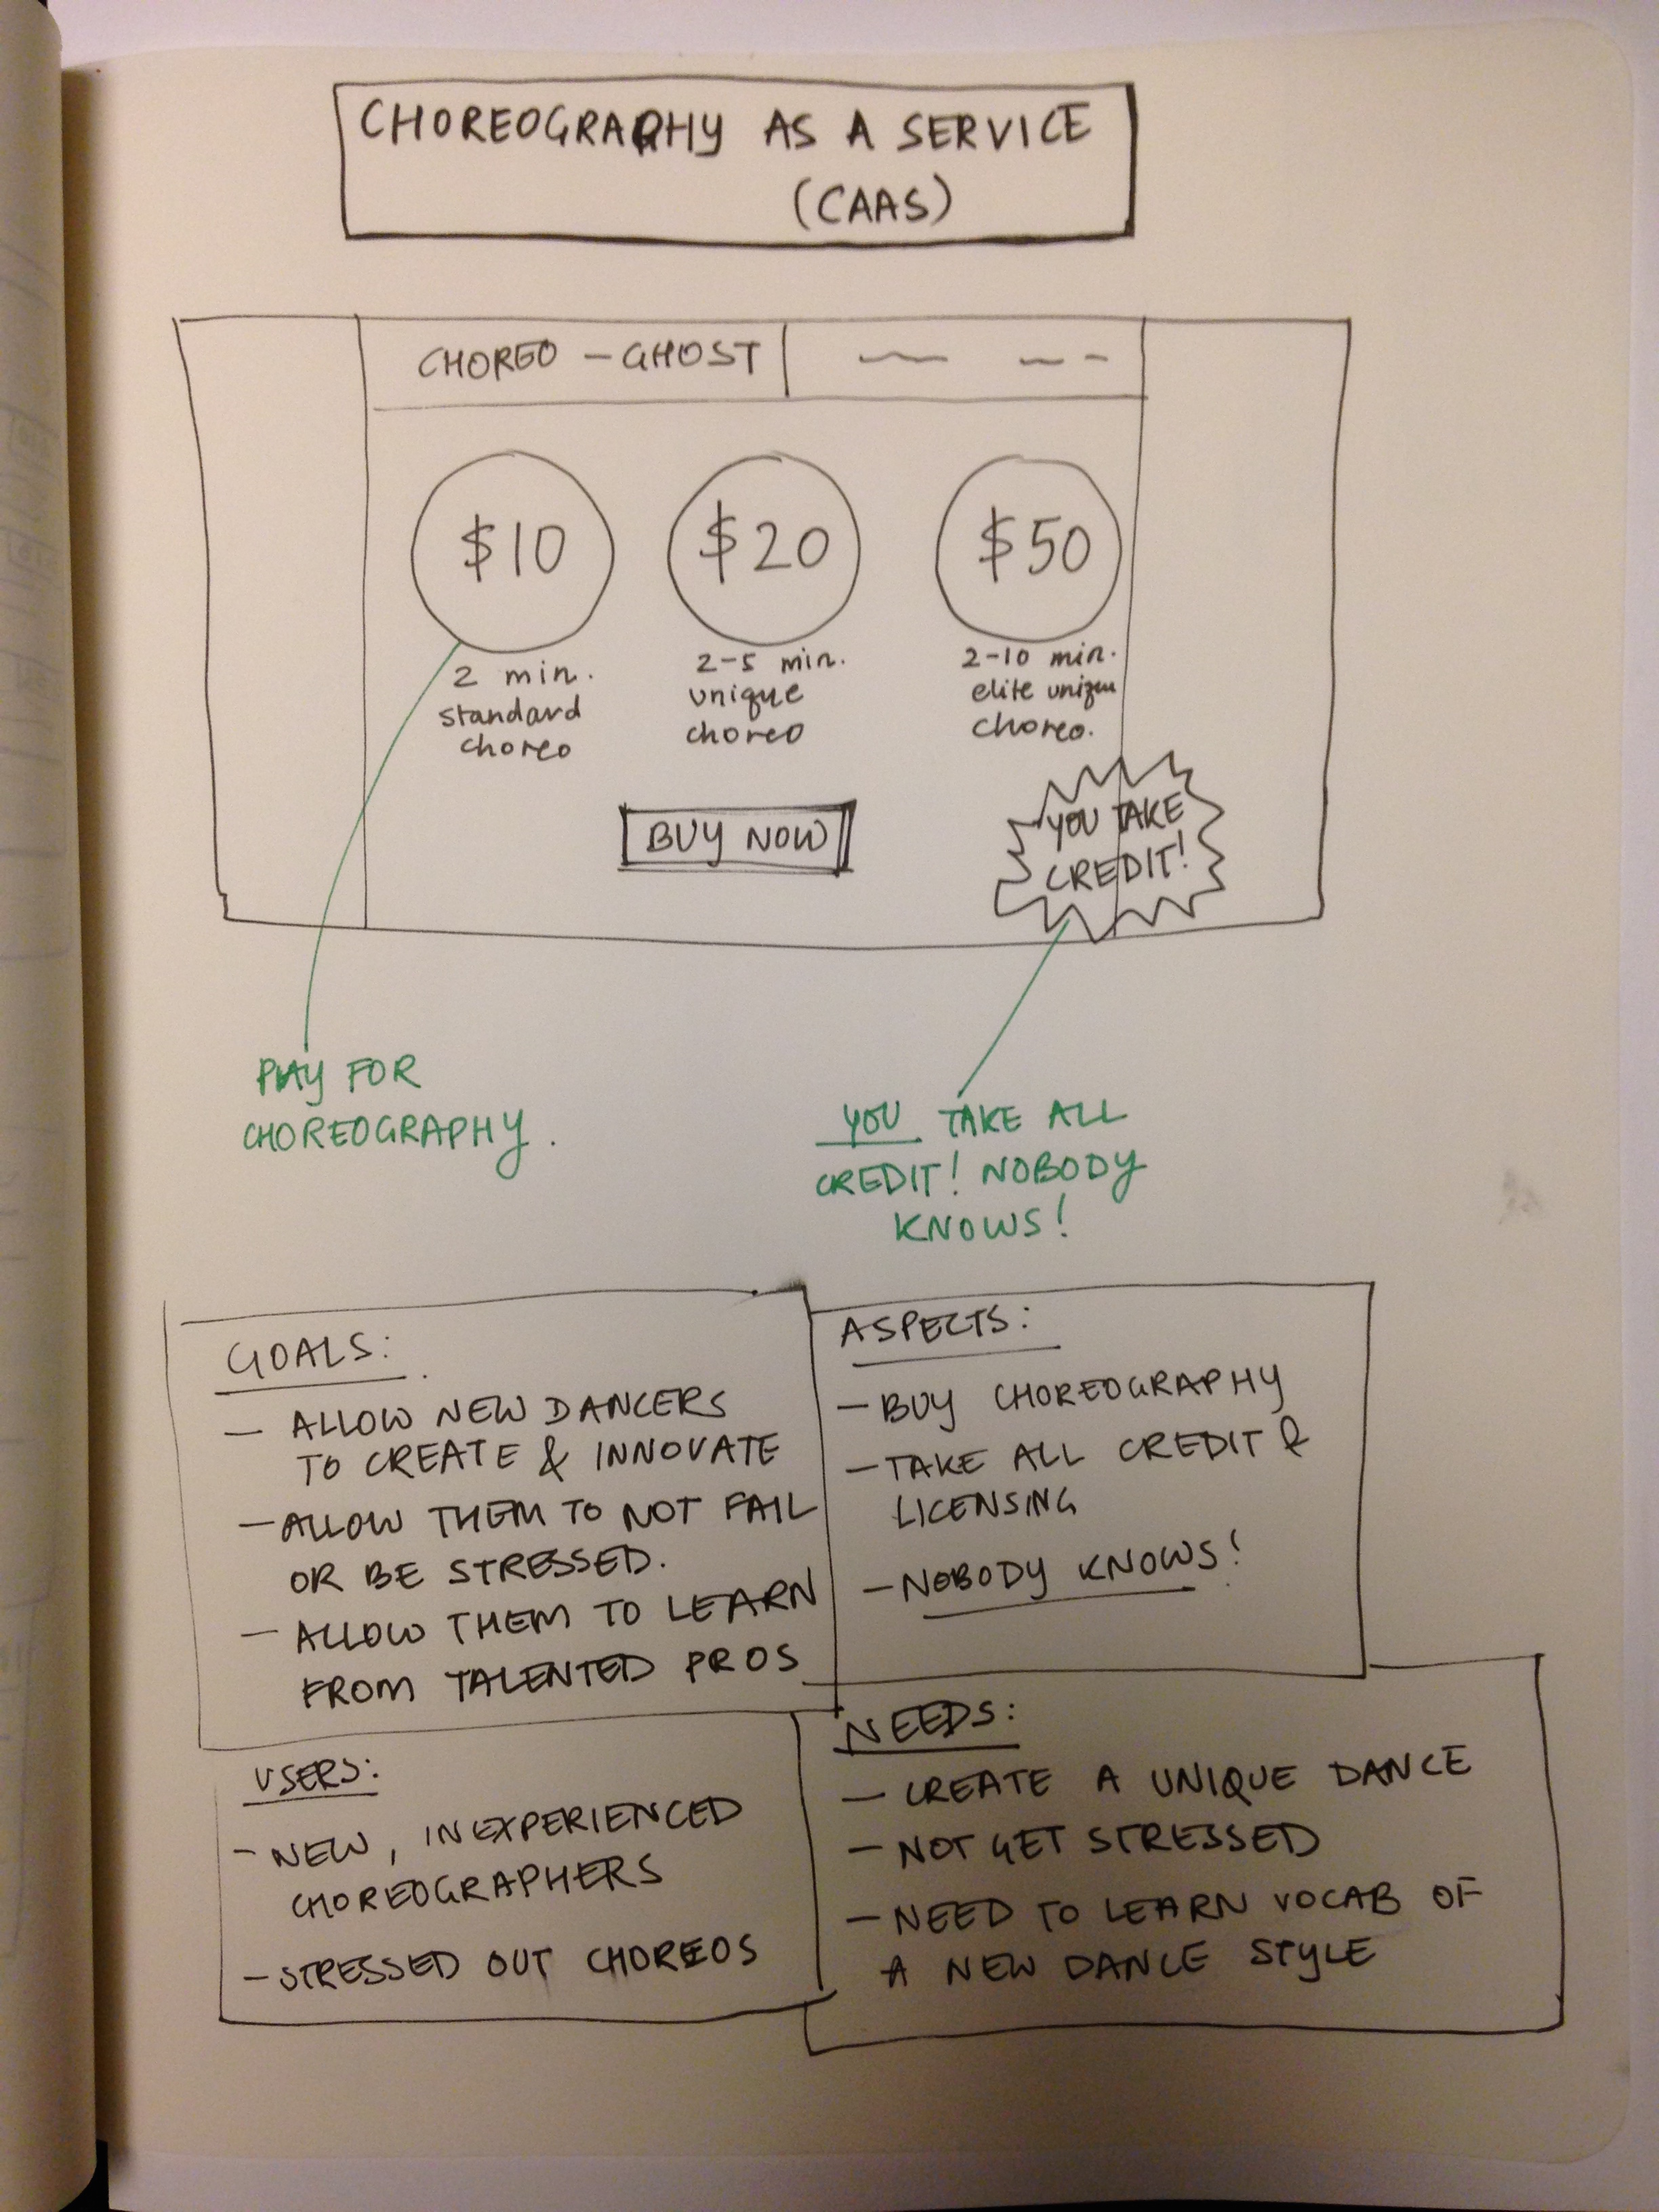 CHOREOGRAPHY AS A SERVICE
(CAAS)
CHOREO - GHOST
$10
$20
$50
2 min.
standard
choreo
2-5 min.
unique
choreo
2-10 min.
elite unique
choreo.
BUY NOW
YOU TAKE
CREDIT!
PAY FOR
CHOREOGRAPHY.
YOU TAKE ALL
CREDIT! NOBODY
KNOWS!
GOALS:
- ALLOW NEW DANCERS
TO CREATE & INNOVATE
- ALLOW THEM TO NOT FAIL
OR BE STRESSED.
- ALLOW THEM TO LEARN
FROM TALENTED PROS
ASPECTS:
- BUY CHOREOGRAPHY
- TAKE ALL CREDIT &
LICENSING
- NOBODY KNOWS!
USERS:
- NEW, INEXPERIENCED
CHOREOGRAPHERS
- STRESSED OUT CHOREOS
NEEDS:
- CREATE A UNIQUE DANCE
- NOT GET STRESSED
- NEED TO LEARN VOCAB OF
A NEW DANCE STYLE